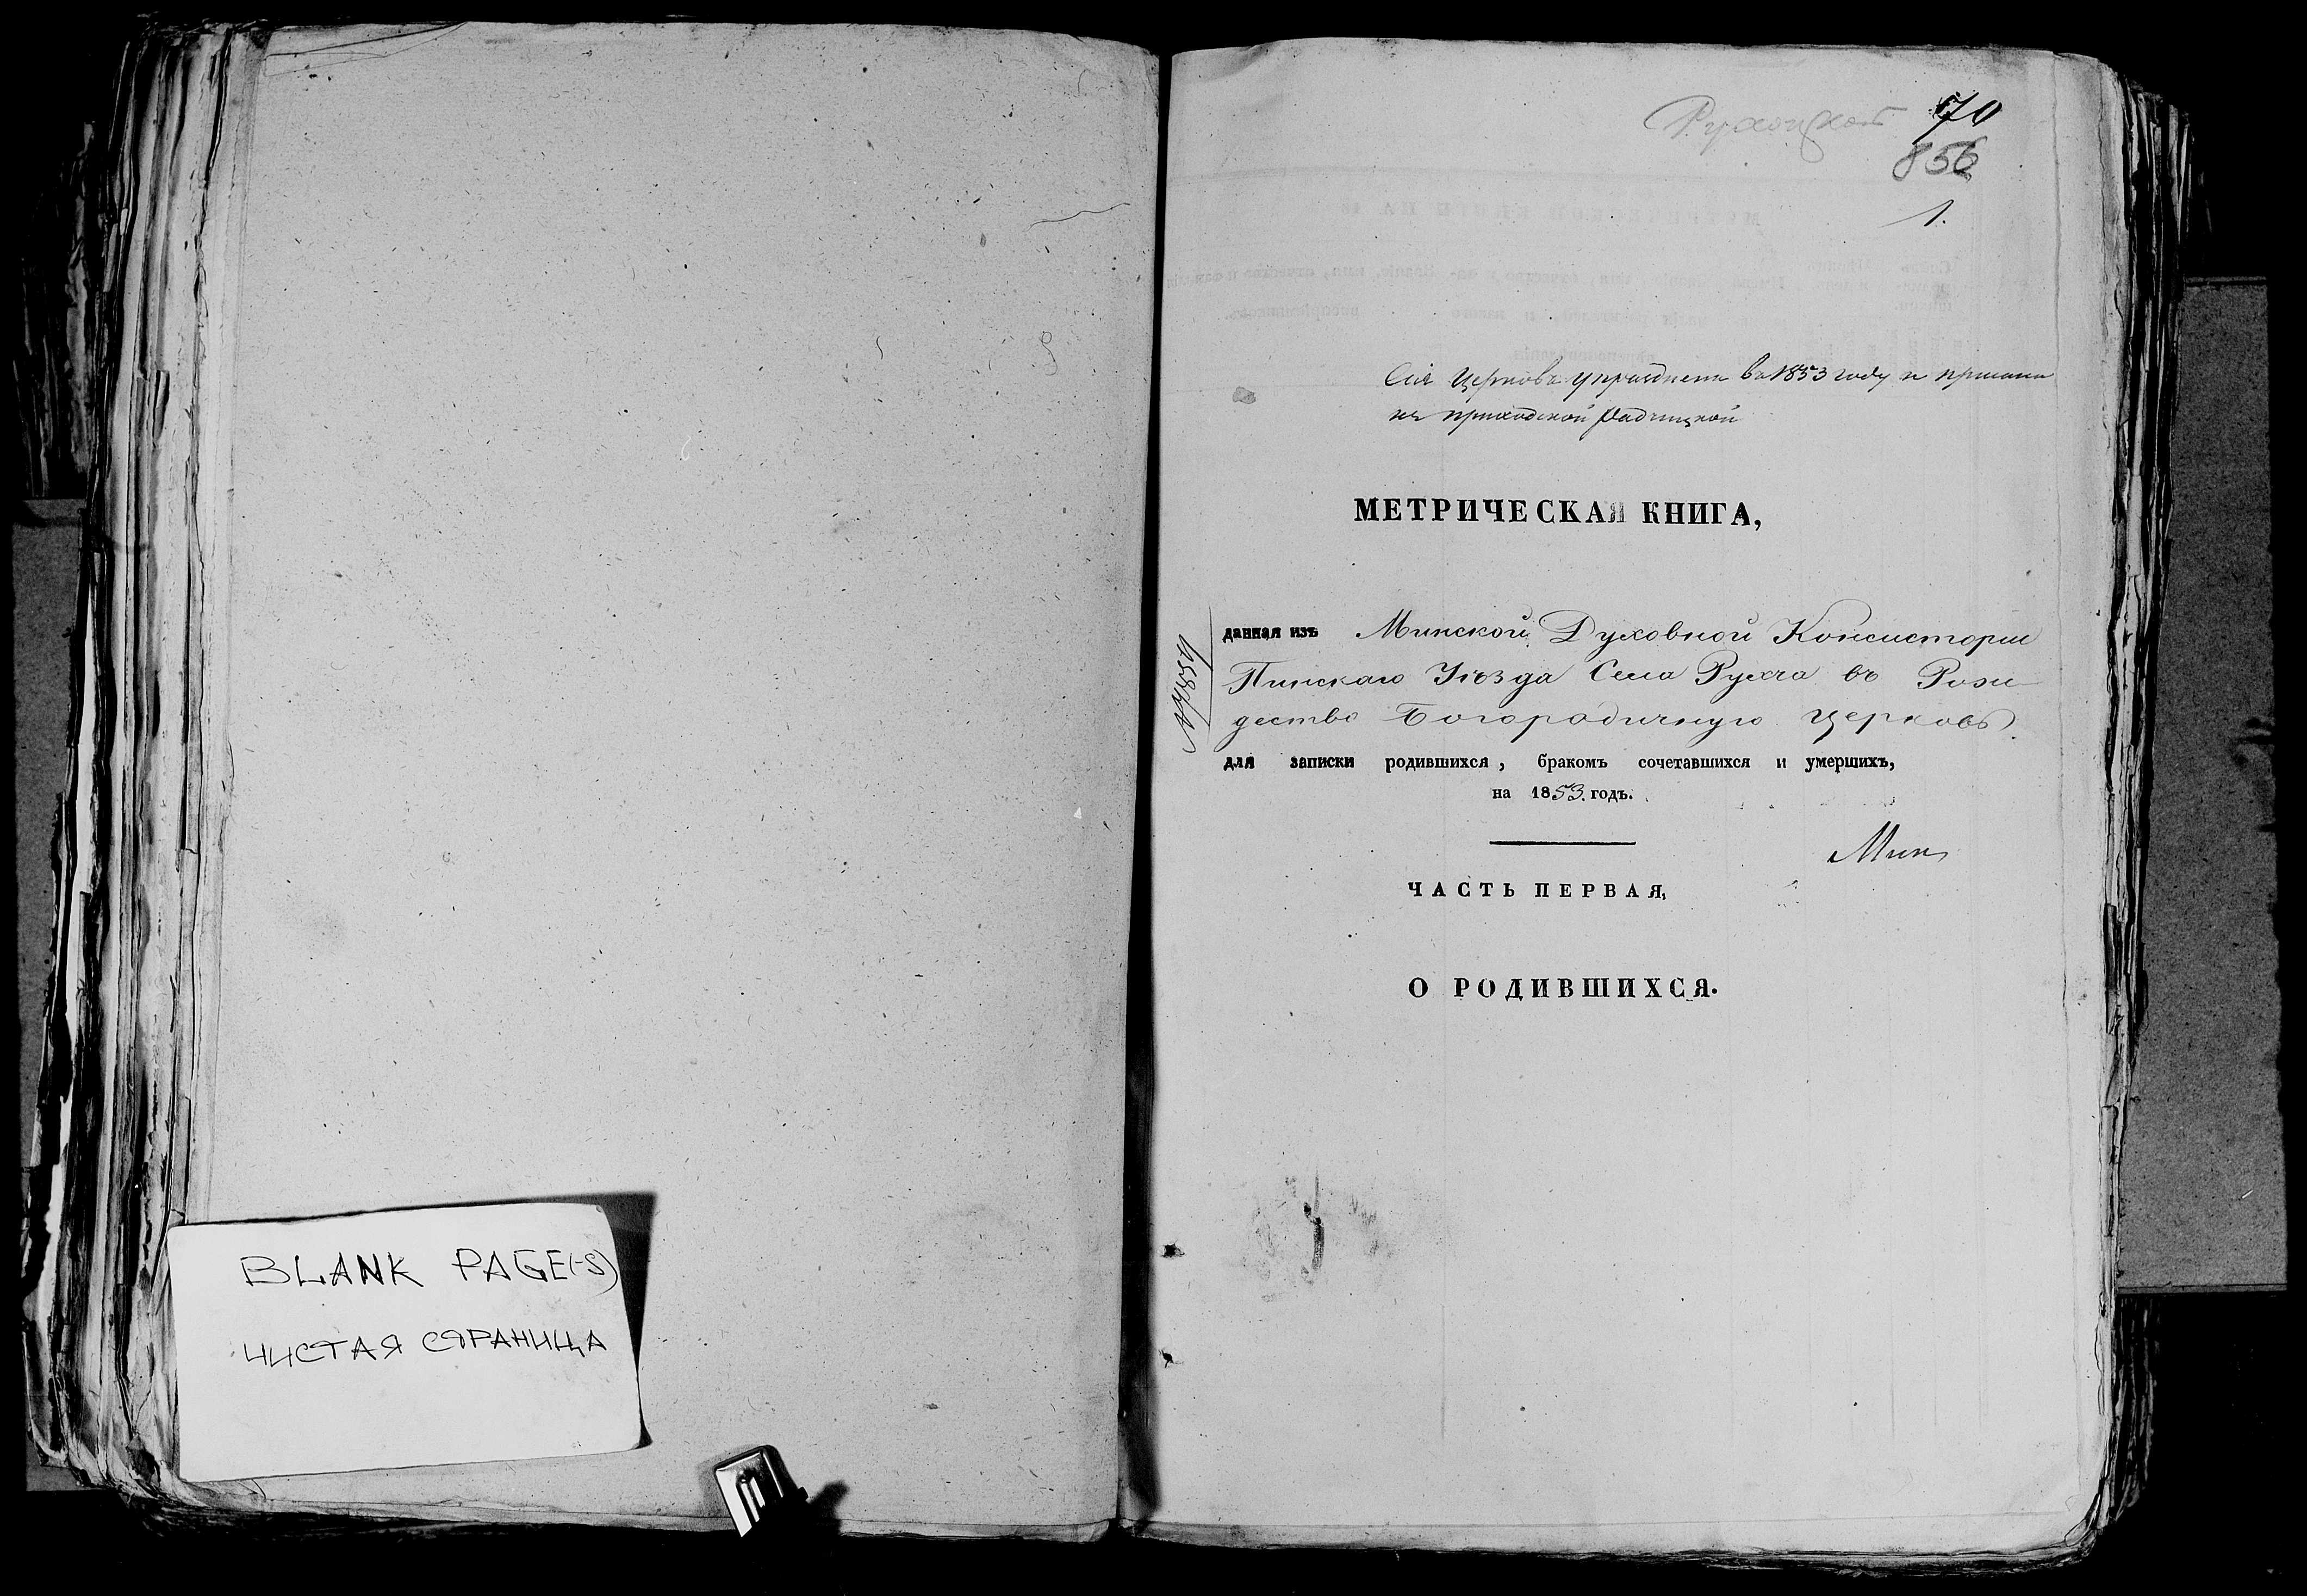 BLANK PAGE(-S)
ЧИСТАЯ СТРАНИЦА
70
856
1.
Сія Церковь упразднена въ 1853 году и
къ приходской Радчицкой
МЕТРИЧЕСКАЯ КНИГА,
данная изъ Минской Духовной Консисторіи
Пинскаго Уѣзда Села Рухча въ Рожде
дество Богородичную церковь
для записки родившихся, бракомъ сочетавшихся и умершихъ,
на 1853. годъ.
Мин
ЧАСТЬ ПЕРВАЯ,
О РОДИВШИХСЯ.